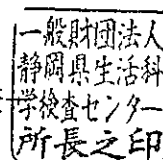 一般財団法人
静岡県生活科
学検査センター
所長之印